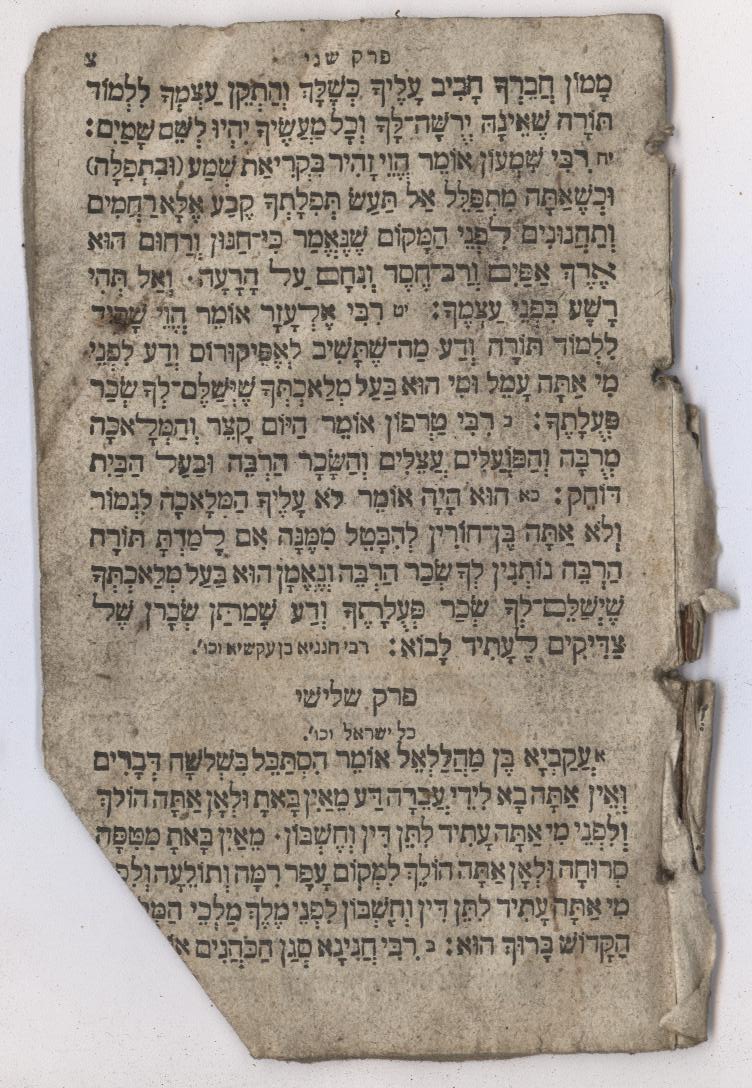 פרק שני צ
מָמוֹן חֲבֵרְךָ חָבִיב עָלֶיךָ כְּשֶׁלָּךְ וְהַתְקֵן עַצְמְךָ לִלְמוֹד
תּוֹרָה שֶׁאֵינָהּ יְרֻשָּׁה־לָּךְ וְכָל מַעֲשֶׂיךָ יִהְיוּ לְשֵׁם שָׁמָיִם:
יח רִבִּי שִׁמְעוֹן אוֹמֵר הֱוֵי זָהִיר בִּקְרִיאַת שְׁמַע (וּבִתְפִלָּה)
וּכְשֶׁאַתָּה מִתְפַּלֵּל אַל תַּעַשׂ תְּפִלָּתְךָ קֶבַע אֶלָּא רַחֲמִים
וְתַחֲנוּנִים לִפְנֵי הַמָּקוֹם שֶׁנֶּאֱמַר כִּי־חַנּוּן וְרַחוּם הוּא
אֶרֶךְ אַפַּיִם וְרַב־חֶסֶד וְנִחָם עַל הָרָעָה׃ וְאַל תְּהִי
רָשָׁע בִּפְנֵי עַצְמֶךָ: יט רִבִּי אֶלְעָזָר אוֹמֵר הֱוֵי שָׁקוּד
לִלְמוֹד תּוֹרָה וְדַע מַה־שֶּׁתָּשִׁיב לְאֶפִּיקוּרוֹם וְדַע לִפְנֵי
מִי אַתָּה עָמֵל וּמִי הוּא בַּעַל מְלַאכְתְּךָ שֶׁיְּשַׁלֶּם־לְךָ שְׂכַר
פְּעֻלָּתֶךָ: כ רִבִּי טַרְפוֹן אוֹמֵר הַיּוֹם קָצֵר וְהַמְּלָאכָה
מְרֻבָּה וְהַפּוֹעֲלִים עֲצֵלִים וְהַשָּׂכָר הַרְבֵּה וּבַעַל הַבַּיִת
דּוֹחֵק: כא הוּא הָיָה אוֹמֵר לֹא עָלֶיךָ הַמְּלָאכָה לִגְמוֹר
וְלֹא אַתָּה בֶּן־חוֹרִין לְהִבָּטֵל מִמֶּנָּה אִם לָמַדְתָּ תּוֹרָה
הַרְבֵּה נוֹתְנִין לְךָ שְׂכַר הַרְבֵּה וְנֶאֱמָן הוּא בַּעַל מְלַאכְתְּךָ
שֶׁיְּשַׁלֶּם־לְךָ שְׂכַר פְּעֻלָּתֶךָ וְדַע שֶׁמַּתַּן שְׂכָרָן שֶׁל
צַדִּיקִים לֶעָתִיד לָבוֹא: רבי חנניא בן עקשיא וכו'.
פרק שלישי
כל ישראל וכו'.
א עֲקַבְיָא בֶּן מַהֲלַלְאֵל אוֹמֵר הִסְתַּכֵּל בִּשְׁלֹשָׁה דְבָרִים
וְאֵין אַתָּה בָא לִידֵי עֲבֵרָה דַּע מֵאַיִן בָּאתָ וּלְאָן אַתָּה הוֹלֵךְ
וְלִפְנֵי מִי אַתָּה עָתִיד לִתֵּן דִּין וְחֶשְׁבּוֹן· מֵאַיִן בָּאתָ מִטִּפָּה
סְרוּחָה וּלְאָן אַתָּה הוֹלֵךְ לִמְקוֹם עָפָר רִמָּה וְתוֹלֵעָה
מִי אַתָּה עָתִיד לִתֵּן דִּין וְחֶשְׁבּוֹן לִפְנֵי מֶלֶךְ מַלְכֵי
הַקָּדוֹשׁ בָּרוּךְ הוּא: ב רִבִּי חֲנִינָא סְגַן הַכֹּהֲנִים